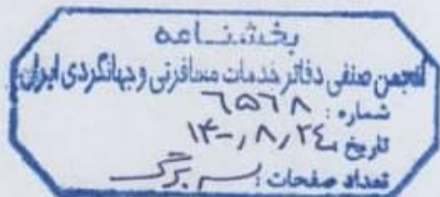 بخشنامه
انجمن صنفی دفاتر خدمات مسافرتی و جهانگردی ایران
شماره: ۶۵۶۸
تاریخ ۱۴۰۰/۸/۲۴
تعداد صفحات: سه برگ